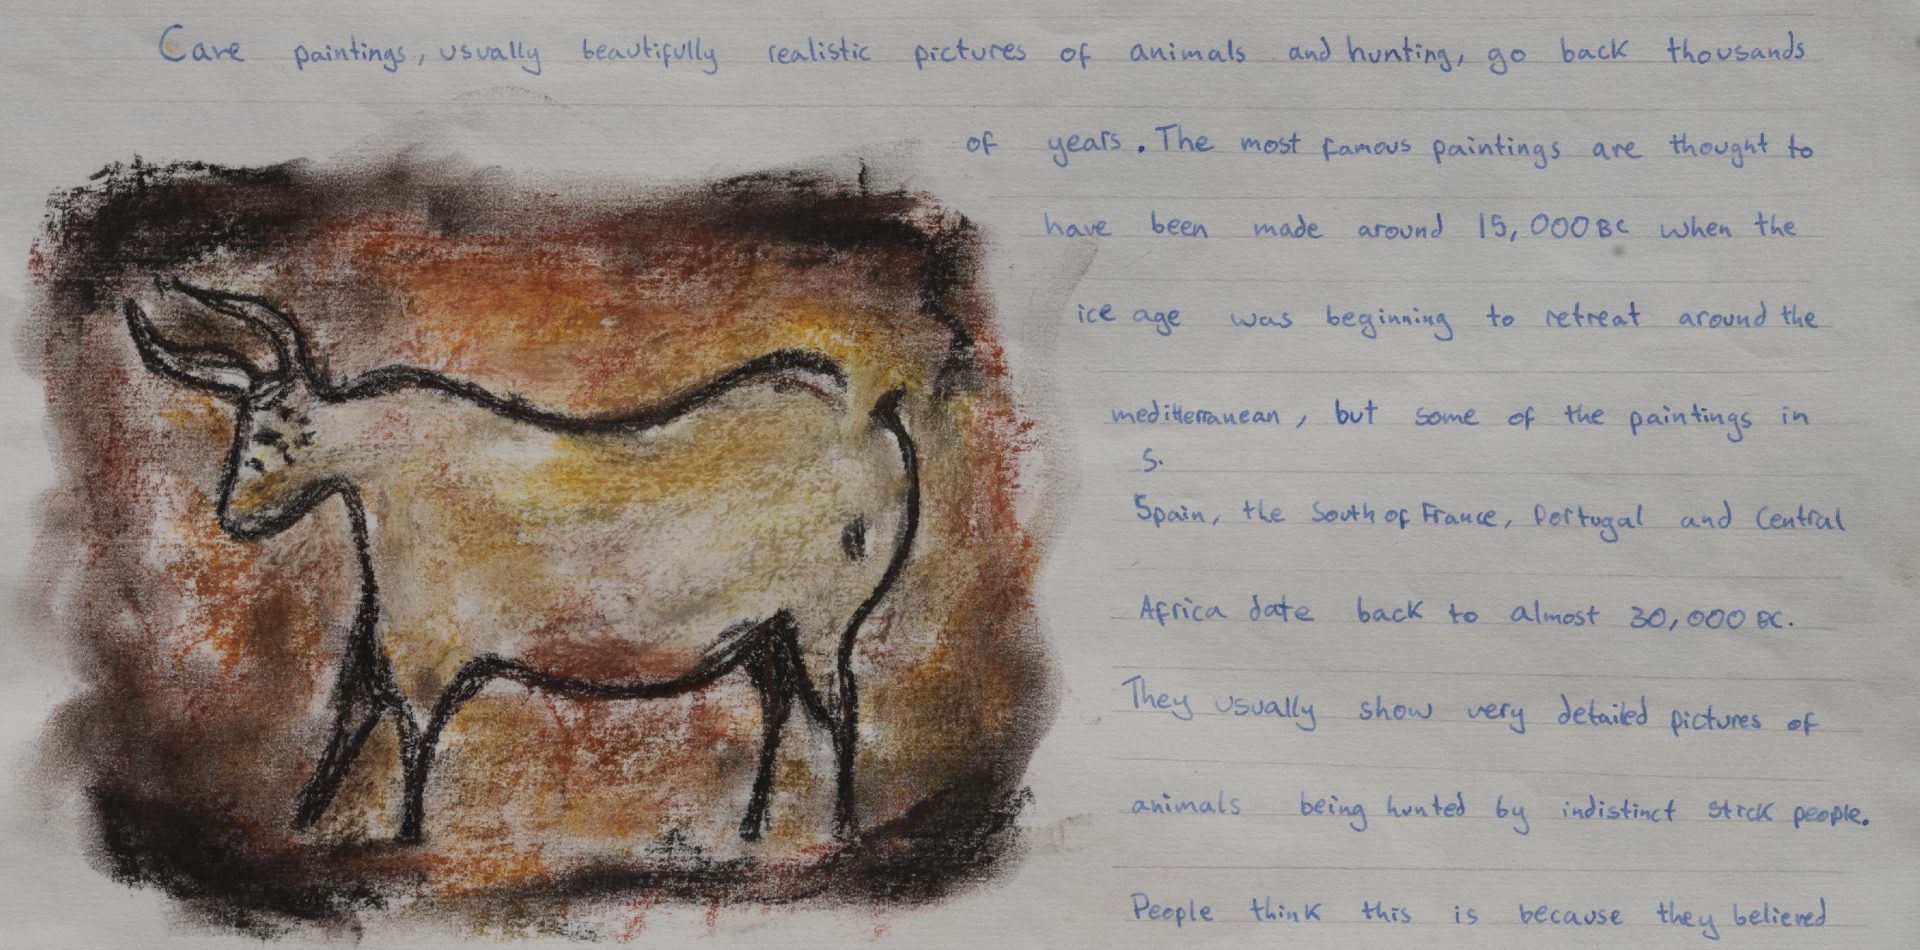 Cave paintings, usually beautifully realistic pictures of animals and hunting, go back thousands
of years. The most famous paintings are thought to
have been made around 15,000 BC when the
ice age was beginning to retreat around the
mediterranean, but some of the paintings in
S.
Spain, the South of France, Portugal and Central
Africa date back to almost 30,000 BC.
They usually show very detailed pictures of
animals being hunted by indistinct stick people.
People think this is because they believed